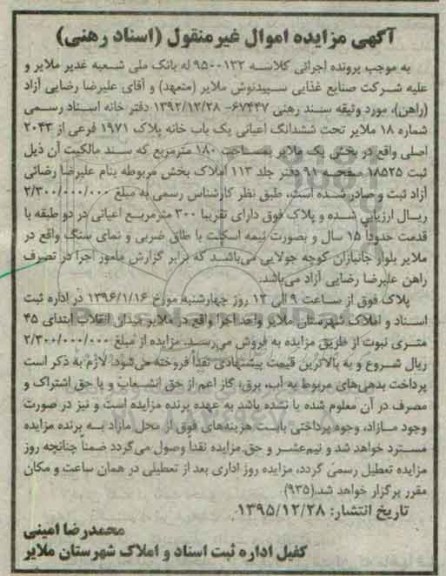 آگهی مزایده اموال غیرمنقول (اسناد رهنی)
به موجب پرونده اجرائی کلاسه ۹۵۰۰۱۳۲ له بانک ملی شعبه غدیر ملایر و
علیه شرکت صنایع غذایی سپیدنوش ملایر (متعهد) و آقای علیرضا رضایی آزاد
(راهن)، مورد وثیقه سند رهنی ۶۷۴۳۷- ۱۳۹۲/۱۲/۲۸ دفتر خانه اسناد رسمی
شماره ۱۸ ملایر تحت ششدانگ اعیانی یک باب خانه پلاک ۱۹۷۱ فرعی از ۲۰۴۳
اصلی واقع در بخش یک ملایر به مساحت ۱۸۰ مترمربع که سند مالکیت آن ذیل
ثبت ۱۸۵۲۵ صفحه ۹۱ دفتر جلد ۱۱۳ املاک بخش مربوطه بنام علیرضا رضائی
آزاد ثبت و صادر شده است، طبق نظر کارشناس رسمی به مبلغ ۲/۳۰۰/۰۰۰/۰۰۰
ریال ارزیابی شده و پلاک فوق دارای تقریبا ۳۰۰ مترمربع اعیانی در دو طبقه با
قدمت حدوداً ۱۵ سال و بصورت نیمه اسکلت با طاق ضربی و نمای سنگ واقع در
ملایر بلوار جانبازان کوچه جولایی می‌باشد که برابر گزارش مامور اجرا در تصرف
راهن علیرضا رضایی آزاد می‌باشد.
پلاک فوق از ساعت ۹ الی ۱۲ روز چهارشنبه مورخ ۱۳۹۶/۱/۱۶ در اداره ثبت
اسناد و املاک شهرستان ملایر واحد اجرا واقع در ملایر میدان انقلاب ابتدای ۴۵
متری نبوت از طریق مزایده به فروش می‌رسد. مزایده از مبلغ ۲/۳۰۰/۰۰۰/۰۰۰
ریال شروع و به بالاترین قیمت پیشنهادی نقداً فروخته می‌شود. لازم به ذکر است
پرداخت بدهی‌های مربوط به آب، برق، گاز اعم از حق انشعاب و یا حق اشتراک و
مصرف در آن معلوم شده یا نشده باشد به عهده برنده مزایده است و نیز در صورت
وجود مازاد، وجوه پرداختی بابت هزینه‌های فوق از محل مازاد به برنده مزایده
مسترد خواهد شد و نیم‌عشر و حق مزایده نقداً وصول می‌گردد ضمناً چنانچه روز
مزایده تعطیل رسمی گردد، مزایده روز اداری بعد از تعطیلی در همان ساعت و مکان
مقرر برگزار خواهد شد.(۹۳۵)
تاریخ انتشار: ۱۳۹۵/۱۲/۲۸.
محمدرضا امینی
کفیل اداره ثبت اسناد و املاک شهرستان ملایر